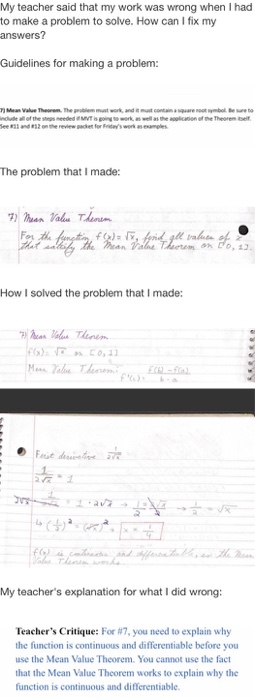 My teacher said that my work was wrong when I had
to make a problem to solve. How can I fix my
answers?
Guidelines for making a problem:
7) Mean Value Theorem. The problem must work, and it must contain a square root symbol. Be sure to
include all of the steps needed if MVT is going to work, as well as the application of the Theorem itself.
See #11 and #12 on the review packet for Friday's work as examples.
The problem that I made:
7) Mean Value Theorem
For the function f(x) = √x, find all values of
that satisfy the Mean Value Theorem on [0, 1].
How I solved the problem that I made:
7) Mean Value Theorem
f(x) = √x on [0, 1]
Mean Value Theorem: f'(x) = f(b) - f(a) / b - a
First derivative 1/2√x
1/2√x = 1
= 1 · 2√x → → 1/2 = √x
↳ (1/2)² = (√x)² = x = 1/4
f(x) is continuous and differentiable, so the Mean
Value Theorem works.
My teacher's explanation for what I did wrong:
Teacher's Critique: For #7, you need to explain why
the function is continuous and differentiable before you
use the Mean Value Theorem. You cannot use the fact
that the Mean Value Theorem works to explain why the
function is continuous and differentiable.